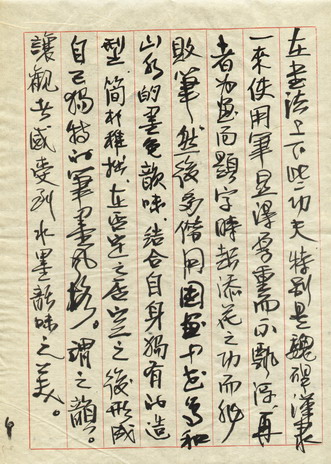 在书法上下些功夫特别是魏碑汉隶
一来使用笔显得厚重而不飘浮再
者为画面题字时起添花之功而非
败笔然后另借用国画中花鸟和
山水的墨色韻味.结合自身獨有的造
型.简朴稚拙.在的之后形成
自己獨特的筆墨风格。谓之韻。
讓觀者感受到水墨韻味之美。